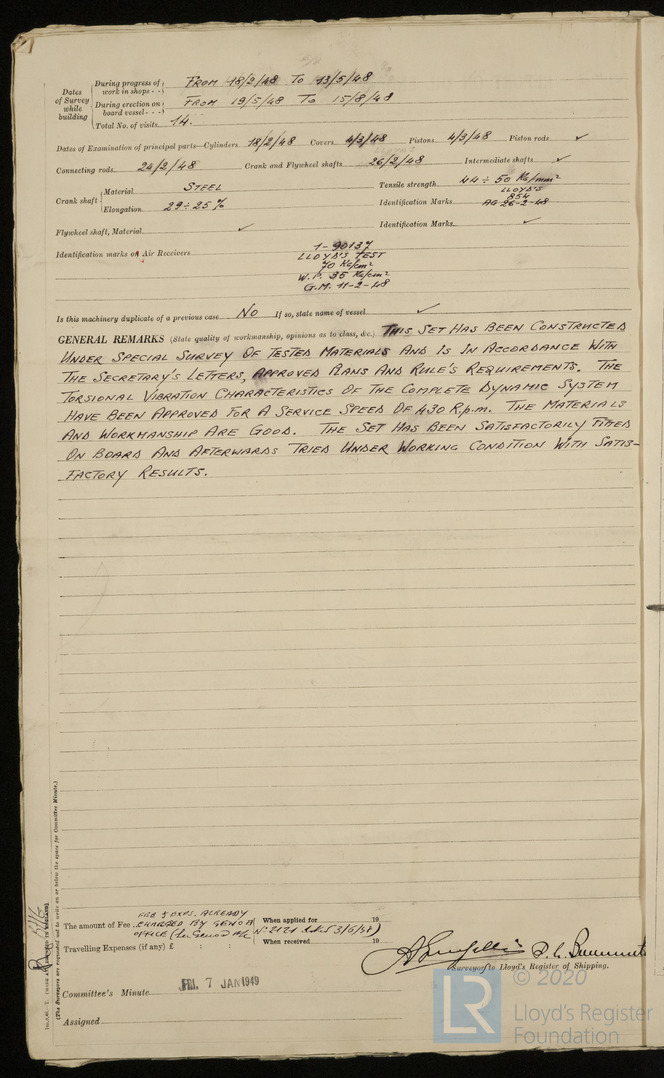 Dates of Survey while building
During progress of work in shops - - FROM 18/2/48 TO 13/5/48
During erection on board vessel - - - FROM 19/5/48 TO 15/8/48
Total No. of visits 14.
Dates of Examination of principal parts—Cylinders 18/2/48 Covers 4/3/48 Pistons 4/3/48 Piston rods ✓
Connecting rods 24/2/48 Crank and Flywheel shafts 26/2/48 Intermediate shafts ✓
Crank shaft Material STEEL Tensile strength 44 ÷ 50 Kg/mm²
Elongation 29 ÷ 25 % Identification Marks LLOYD'S 854 AG-26-2-48
Flywheel shaft, Material ✓ Identification Marks ✓
Identification marks on Air Receivers 1-90137
LLOYD'S TEST
70 Kg/cm²
W.P. 35 Kg/cm²
G.M. 11-2-48
Is this machinery duplicate of a previous case No If so, state name of vessel ✓
GENERAL REMARKS (State quality of workmanship, opinions as to class, &c.) THIS SET HAS BEEN CONSTRUCTED
UNDER SPECIAL SURVEY OF TESTED MATERIALS AND IS IN ACCORDANCE WITH
THE SECRETARY'S LETTERS, APPROVED PLANS AND RULE'S REQUIREMENTS. THE
TORSIONAL VIBRATION CHARACTERISTICS OF THE COMPLETE DYNAMIC SYSTEM
HAVE BEEN APPROVED FOR A SERVICE SPEED OF 430 R.p.m. THE MATERIALS
AND WORKMANSHIP ARE GOOD. THE SET HAS BEEN SATISFACTORILY FITTED
ON BOARD AND AFTERWARDS TRIED UNDER WORKING CONDITION WITH SATIS-
FACTORY RESULTS.
(The Surveyors are requested not to write on or below the space for Committee Minute.)
FEE & EXPS. ALREADY
The amount of Fee CHARGED BY GENOA When applied for 19
OFFICE N° 2121 3/6/48)
Travelling Expenses (if any) £ : : When received 19
Surveyors to Lloyd's Register of Shipping.
Committee's Minute FRI. 7 JAN 1949
Assigned
© 2020
LR
Lloyd's Register
Foundation